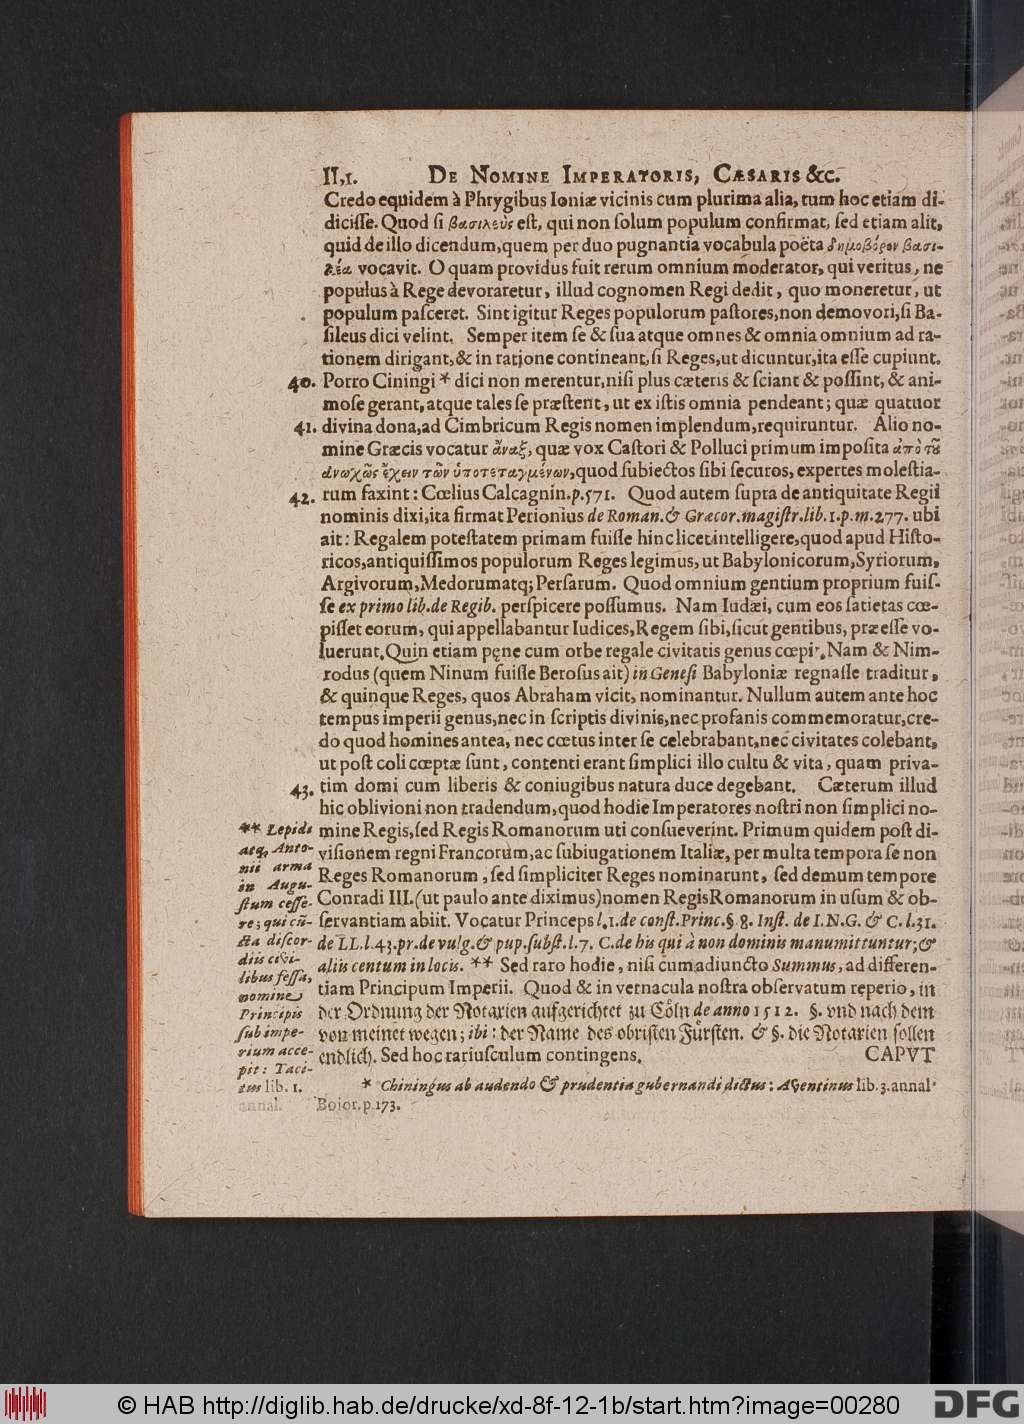 II,1. DE NOMINE IMPERATORIS, CÆSARIS &c.
Credo equidem à Phrygibus Ioniæ vicinis cum plurima alia, tum hoc etiam di-
diciſſe. Quod ſi βασιλεὺς eſt, qui non ſolum populum confirmat, ſed etiam alit,
quid de illo dicendum, quem per duo pugnantia vocabula poëta δημοβόρον βασι-
λέα vocavit. O quam providus fuit rerum omnium moderator, qui veritus, ne
populus à Rege devoraretur, illud cognomen Regi dedit, quo moneretur, ut
populum paſceret. Sint igitur Reges populorum paſtores, non demovori, ſi Ba-
ſileus dici velint. Semper item ſe & ſua atque omnes & omnia omnium ad ra-
tionem dirigant, & in ratione contineant, ſi Reges, ut dicuntur, ita eſſe cupiunt.
40. Porro Ciningi * dici non merentur, niſi plus cæteris & ſciant & poſſint, & ani-
moſe gerant, atque tales ſe præſtent, ut ex iſtis omnia pendeant; quæ quatuor
41. divina dona, ad Cimbricum Regis nomen implendum, requiruntur. Alio no-
mine Græcis vocatur ἄναξ, quæ vox Caſtori & Polluci primum impoſita ἀπὸ τȣ͂
ἀνωχῶς ἔχειν τῶν ὑποτεταγμένων, quod ſubiectos ſibi ſecuros, expertes moleſtia-
42. rum faxint: Cœlius Calcagnin. p. 571. Quod autem ſupra de antiquitate Regii
nominis dixi, ita firmat Perionius de Roman. & Græcor. magiſtr. lib. 1. p. m. 277. ubi
ait: Regalem poteſtatem primam fuiſſe hinc licet intelligere, quod apud Hiſto-
ricos, antiquiſſimos populorum Reges legimus, ut Babylonicorum, Syriorum,
Argivorum, Medorumatq; Perſarum. Quod omnium gentium proprium fuiſ-
ſe ex primo lib. de Regib. perſpicere poſſumus. Nam Iudæi, cum eos ſatietas cœ-
piſſet eorum, qui appellabantur Iudices, Regem ſibi, ſicut gentibus, præeſſe vo-
luerunt. Quin etiam pęne cum orbe regale civitatis genus cœpit. Nam & Nim-
rodus (quem Ninum fuiſſe Beroſus ait) in Geneſi Babyloniæ regnaſſe traditur,
& quinque Reges, quos Abraham vicit, nominantur. Nullum autem ante hoc
tempus imperii genus, nec in ſcriptis divinis, nec profanis commemoratur, cre-
do quod homines antea, nec cœtus inter ſe celebrabant, nec civitates colebant,
ut poſt coli cœptæ ſunt, contenti erant ſimplici illo cultu & vita, quam priva-
43. tim domi cum liberis & coniugibus natura duce degebant. Cæterum illud
hic oblivioni non tradendum, quod hodie Imperatores noſtri non ſimplici no-
mine Regis, ſed Regis Romanorum uti conſueverint. Primum quidem poſt di-
viſionem regni Francorum, ac ſubiugationem Italiæ, per multa tempora ſe non
Reges Romanorum, ſed ſimpliciter Reges nominarunt, ſed demum tempore
Conradi III. (ut paulo ante diximus) nomen Regis Romanorum in uſum & ob-
ſervantiam abiit. Vocatur Princeps l. 1. de conſt. Princ. §. 8. Inſt. de I. N. G. & C. l. 31.
de LL. l. 43. pr. de vulg. & pup. ſubſt. l. 7. C. de his qui à non dominis manumittuntur; &
aliis centum in locis. ** Sed raro hodie, niſi cum adiuncto Summus, ad differen-
tiam Principum Imperii. Quod & in vernacula noſtra obſervatum reperio, in
der Ordnung der Notarien aufgerichtet zu Cöln de anno 1512. §. vnd nach dem
von meinet wegen; ibi: der Name des obriſten Fürſten. & §. die Notarien ſollen
endlich. Sed hoc rariuſculum contingens. CAPVT
** Lepidi
atq; Anto-
nii arma
in Augu-
ſtum ceſſe-
re; qui cũ-
cta diſcor-
diis civi-
libus feſſa,
nomine
Principis
ſub impe-
rium acce-
pit: Taci-
tus lib. 1.
annal.
* Chiningus ab audendo & prudentia gubernandi dictus: Aventinus lib. 3. annal.
Boior. p. 173.
© HAB http://diglib.hab.de/drucke/xd-8f-12-1b/start.htm?image=00280
DFG